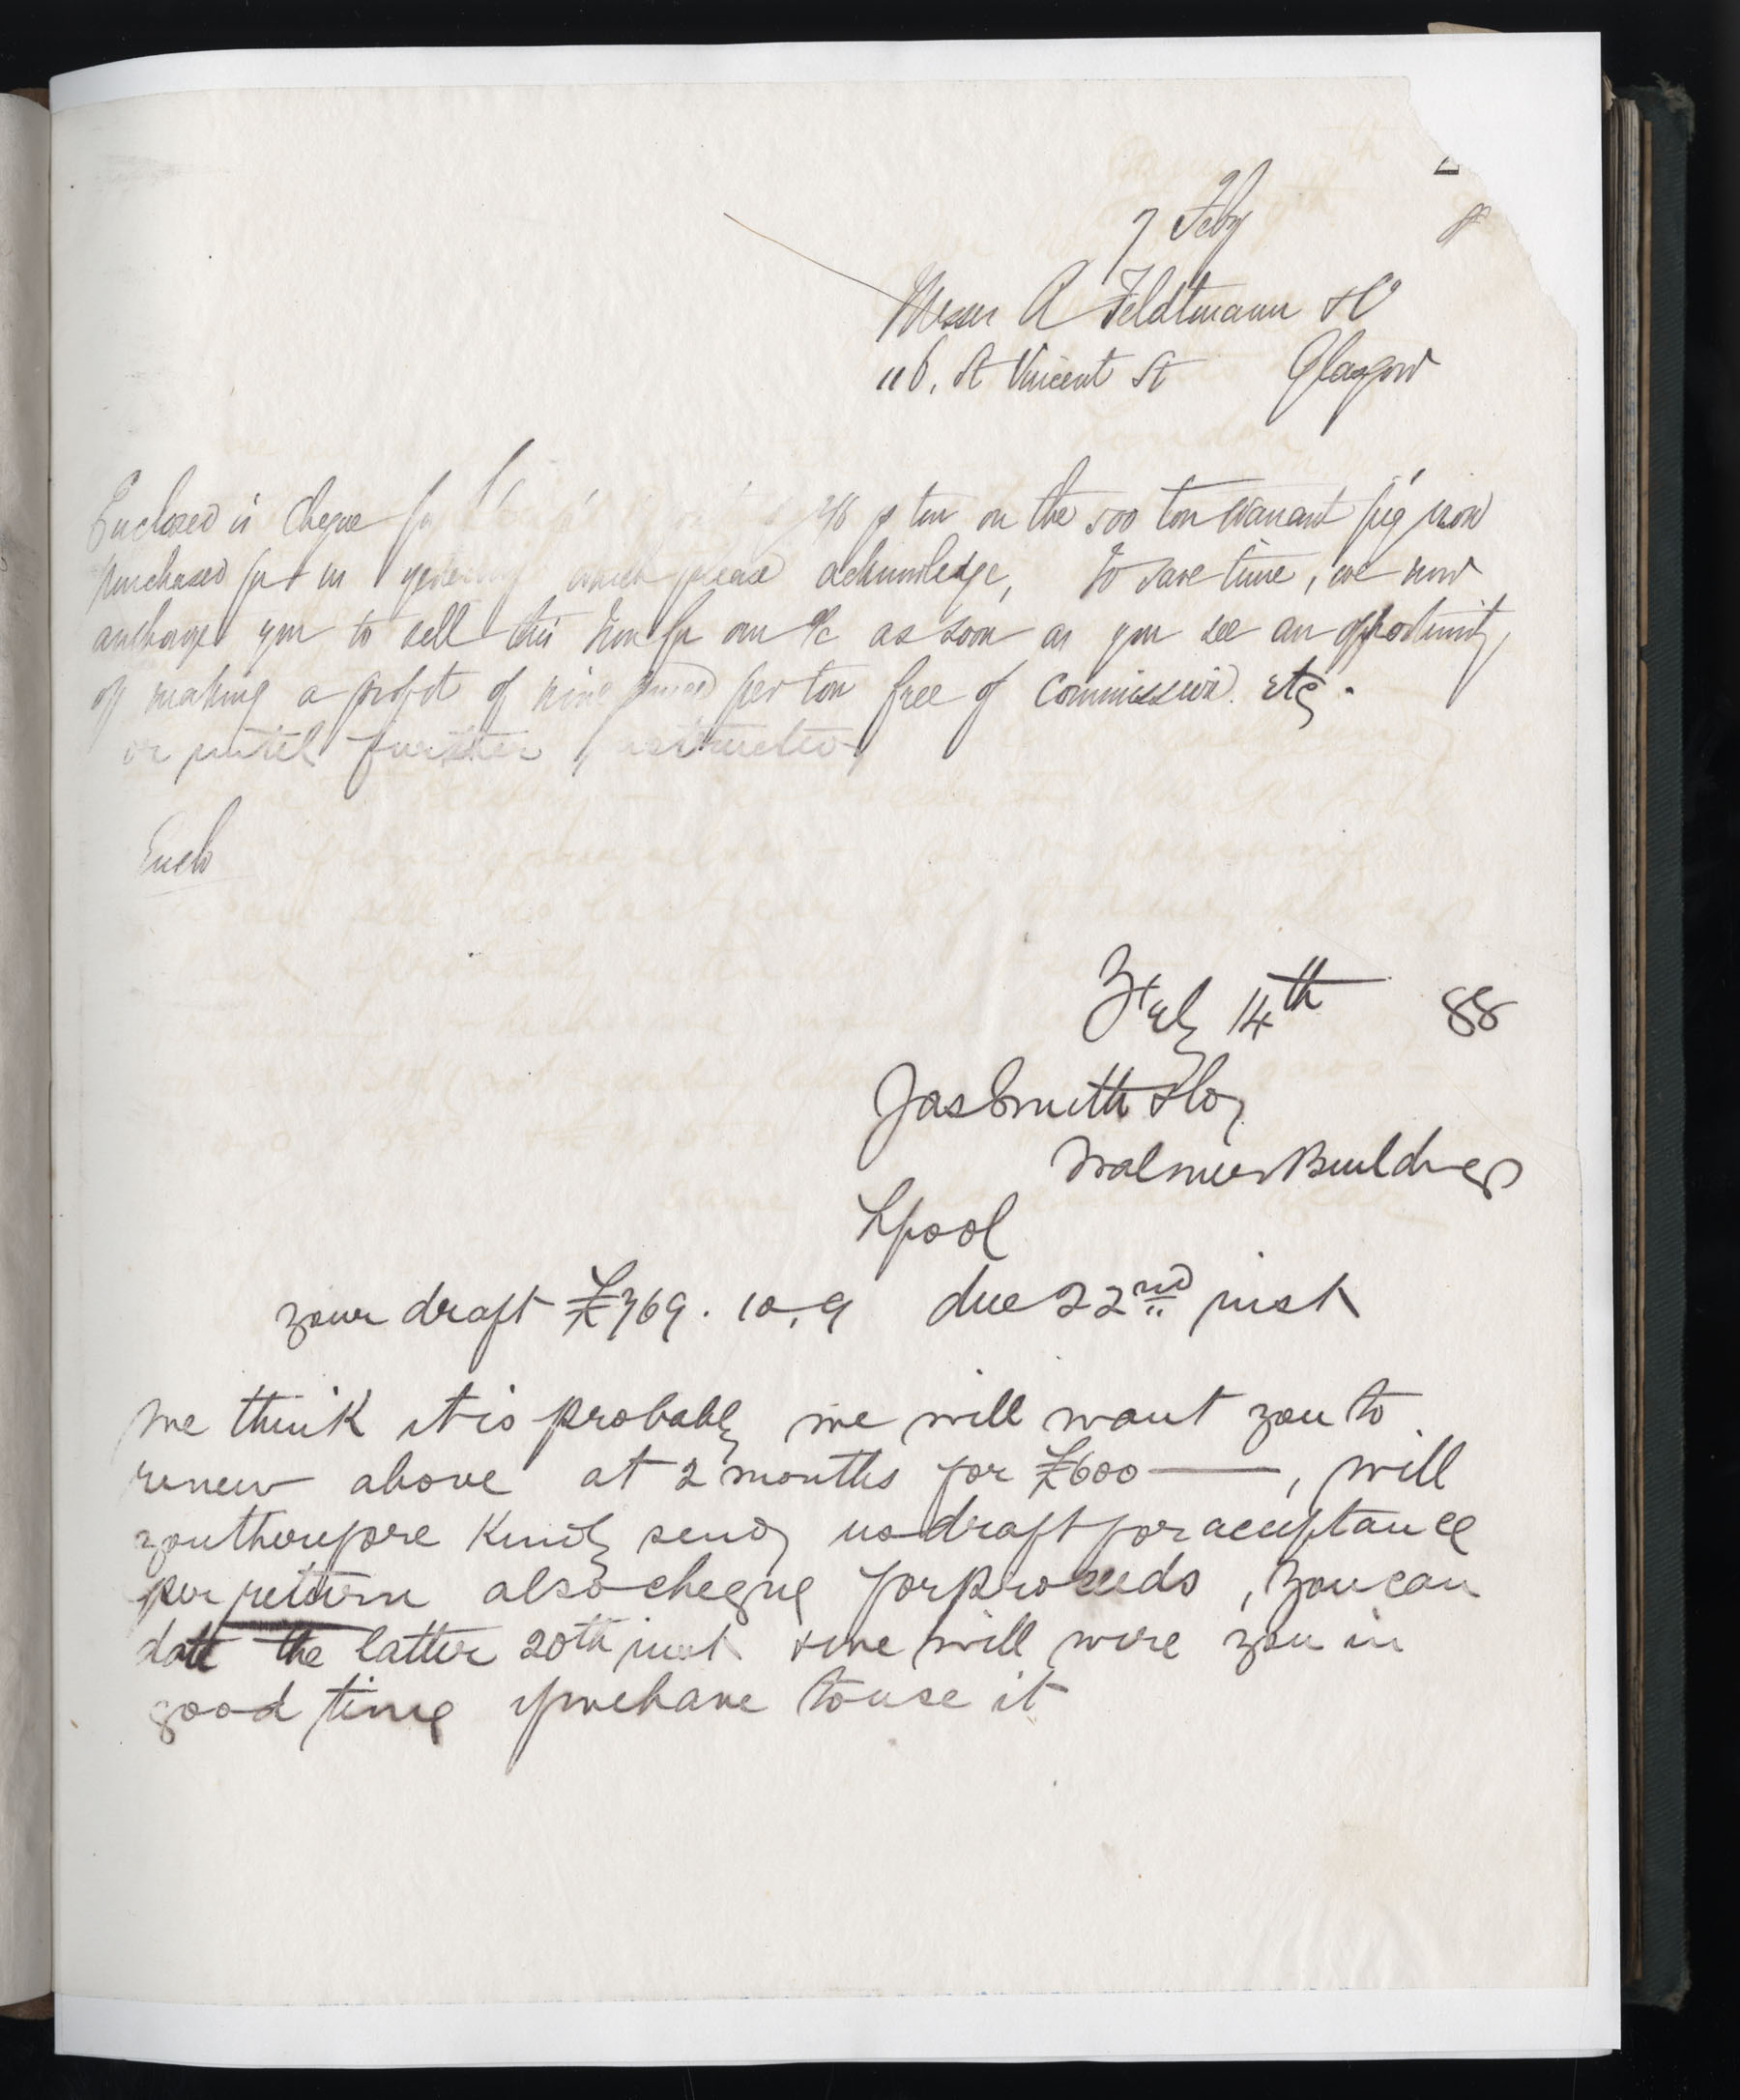 7 Feby
Messrs A Feldtmann & Co
116, St Vincent St Glasgow
Enclosed is cheque for 2/6 p ton on the 500 ton Warrant pig iron
purchased for us yesterday which please acknowledge, To save time, we now
authorize you to sell this Iron for our a/c as soon as you see an opportunity
of making a profit of nine pence per ton free of Commission. etc.
or until further instructed
Enclo
Feby 14th 88
Jas Smith & Co,
Walmer Buildings
Lpool
your draft £769. 10, 9 due 22nd inst
We think it is probably we will want you to
renew above at 2 months for £600 —, will
you therefore kindly send us draft for acceptance
per return also cheque for proceeds, you can
date the latter 20th inst & we will wire you in
good time if we have to use it